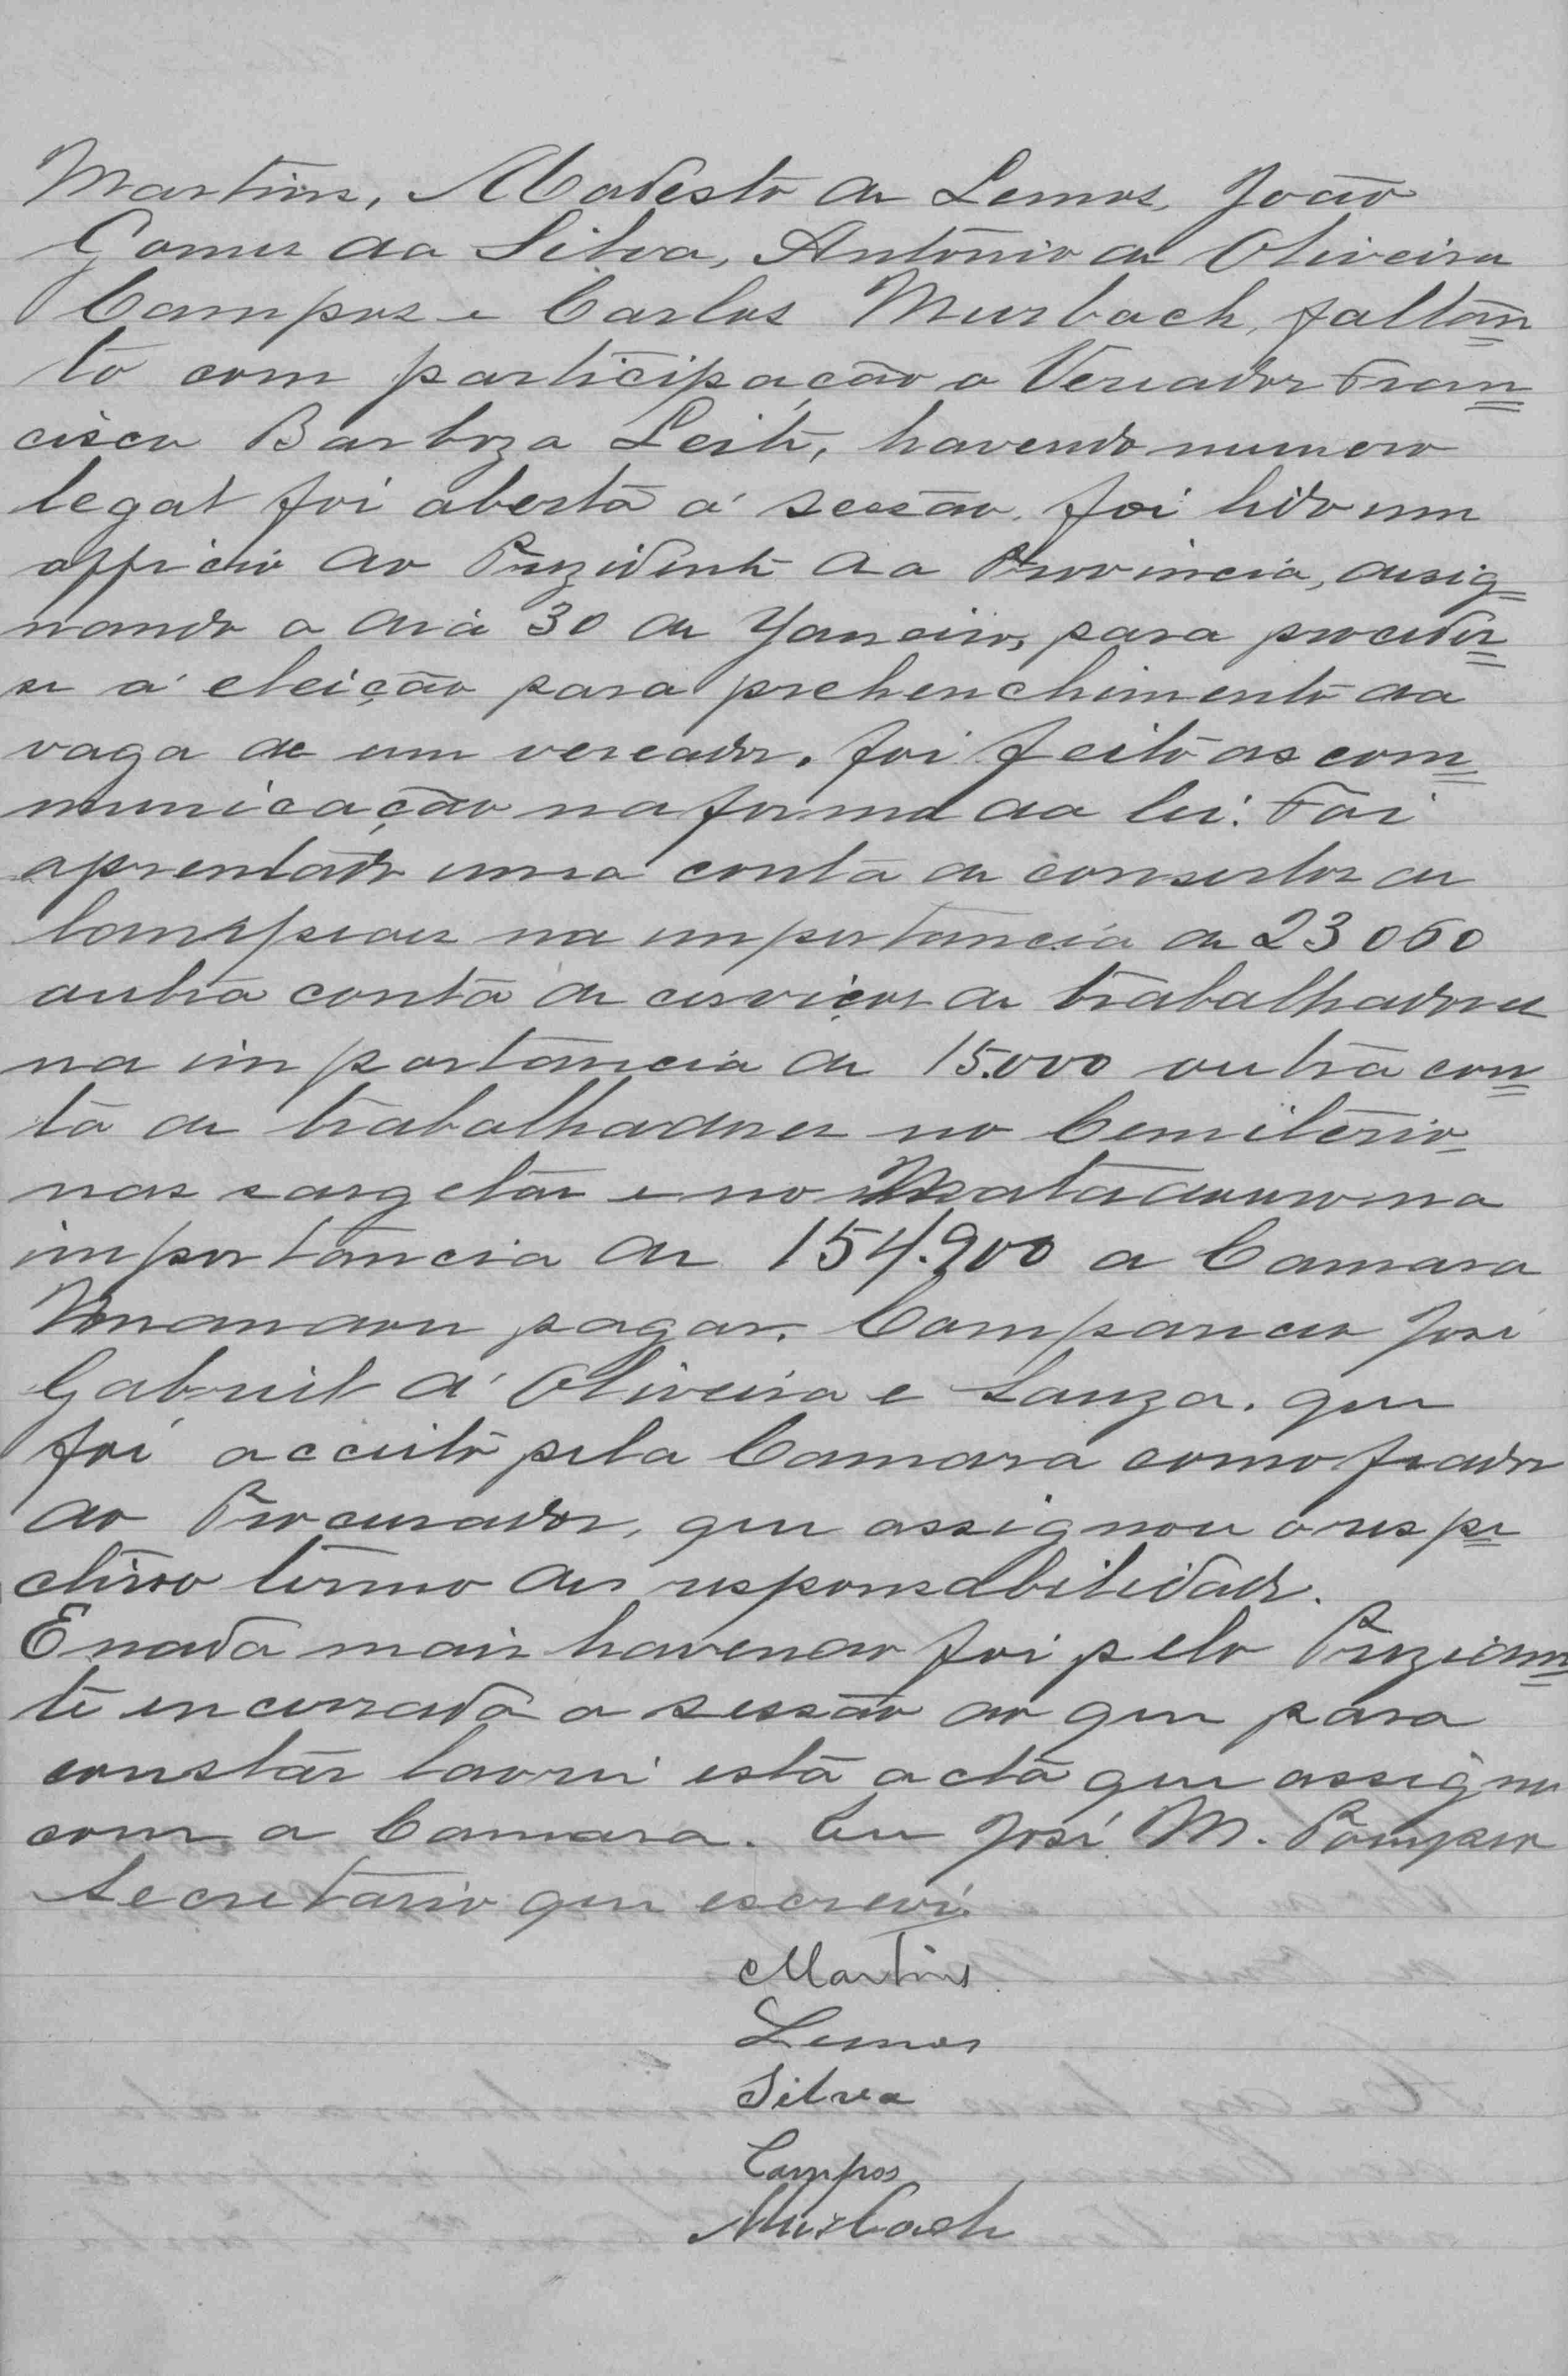 Martins, Modesto de Lemos, João
Gomes da Silva, Antonio de Oliveira
Campos e Carlos Murbach, faltan=
to com participação o Vereador Fran=
cisco Barboza Leite, havendo numero
legal foi aberta a sessão, foi lido um
officio do Prezidente da Provincia, desig=
nando o dia 30 de Janeiro, para proceder=
se á eleição para prehenchimento da
vaga de um vereador. foi feito as com=
municação na forma da lei. Foi
aprentado uma conta de consertos de
lampeoes na importancia de 23060
outra conta de cerviços de trabalhadores
na importancia de 15.000 outra con=
ta de trabalhadores no Cemiterio
nas sargetas e no Matadouro na
importancia de 154.900 a Camara
mandou pagar. Compareceo José
Gabriel d'Oliveira e Souza. que
foi acceito pela Camara como fiador
do Procurador, que assignou o respe=
ctivo termo de responsabilidade.
E nada mais havendo foi pelo Preziden=
te encerrada a sessão do que para
constar lavrei esta acta que assigno
com a Camara. Eu José M. Pompeo
Secretario que escrevi.
Martins
Lemos
Silva
Campos
Murbach